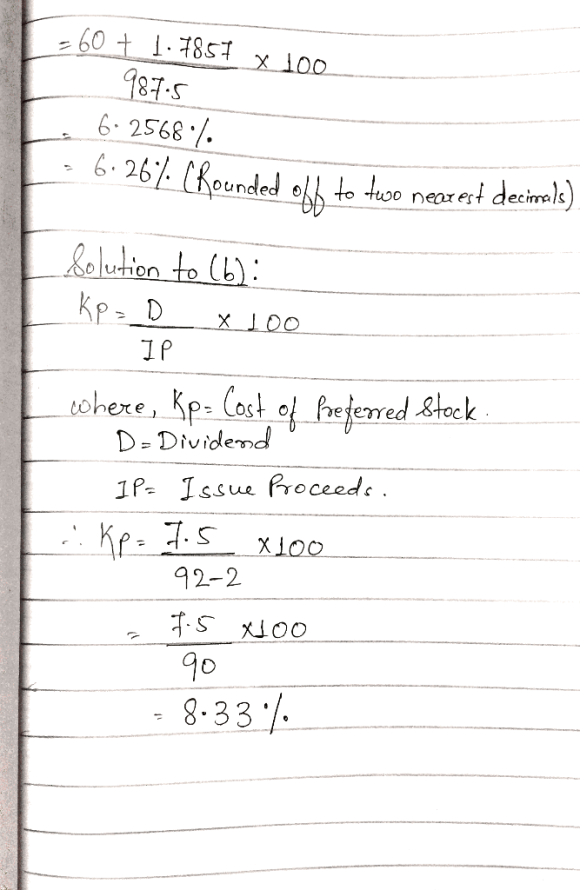 = 60 + 1.7857 x 100
987.5
= 6.2568%.
= 6.26%. (Rounded off to two nearest decimals)
Solution to (b):
Kp = D x 100
IP
where, Kp = Cost of Preferred Stock.
D = Dividend
IP = Issue Proceeds.
∴ Kp = 7.5 x 100
92-2
= 7.5 x 100
90
= 8.33%.